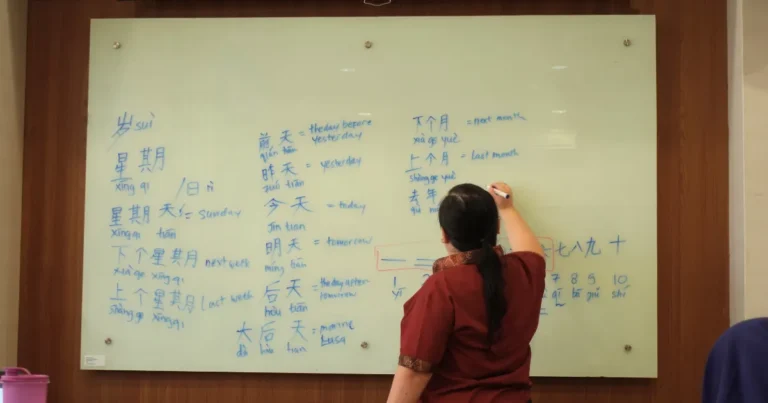 岁 suì
星期
xīng qi /日 rì
星期天 = sunday
xīng qi tiān
下个星期 next week
xià ge xīng qi
上个星期 last week
shàng ge xīng qi
前天 = the day before yesterday
qián tiān
昨天 = yesterday
zuó tiān
今天 = today
jīn tian
明天 = tomorrow
míng tiān
后天 = the day after tomorrow
hòu tiān
大后天 =
dà hòu tian
下个月 = next month
xià ge yuè
上个月 = last month
shàng ge yuè
去年
qù
一 二 七 八 九 十
1 7 8 9 10
yī qī bā jiǔ shí